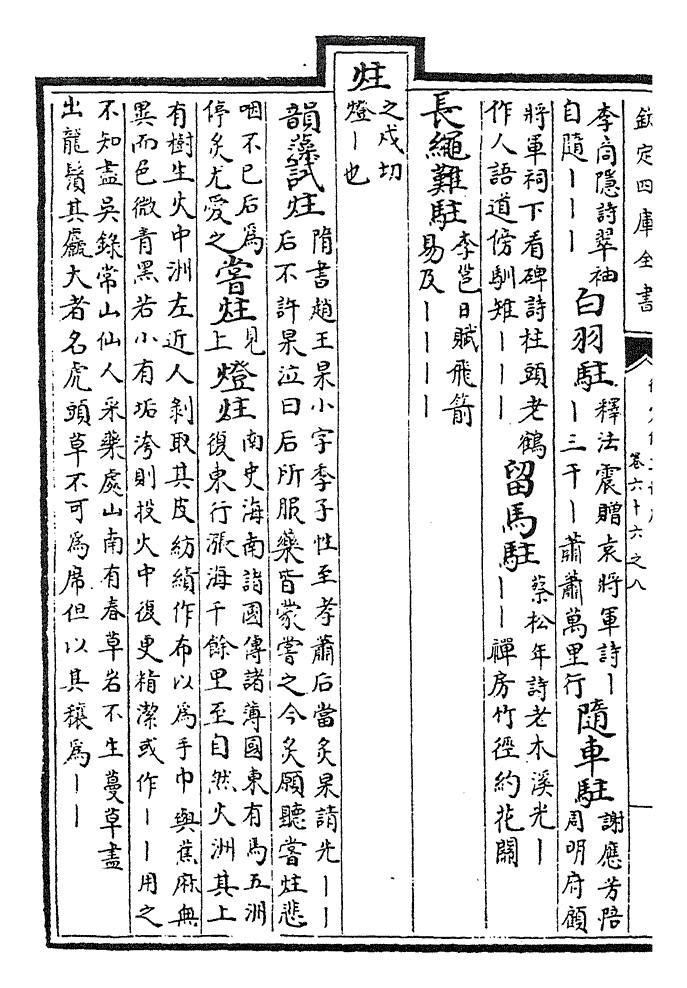 欽定四庫全書
卷六十六之八
李商隱詩翠袖
自隨丨丨丨
白羽駐
釋法震贈袁將軍詩丨
丨三千丨蕭蕭萬里行
隨車駐
謝應芳陪
周明府顧
將軍祠下看碑詩柱頭老鶴
作人語道傍馴雉丨丨丨
留馬駐
蔡松年詩老木溪光丨
丨丨禪房竹徑約花關
長繩難駐
李邕日賦飛箭
易及丨丨丨丨
炷
之戍切
燈丨也
韻藻試炷
隋書趙王杲小字季子性至孝蕭后當炙杲請先丨丨
后不許杲泣曰后所服藥皆蒙嘗之今炙願聽嘗炷悲
咽不已后爲
停炙尤愛之
嘗炷
見
上
燈炷
南史海南諸國傳諸薄國東有馬五洲
復東行漲海千餘里至自然火洲其上
有樹生火中洲左近人剝取其皮紡績作布以爲手巾與蕉麻無
異而色微青黑若小有垢洿則投火中復更精潔或作丨丨用之
不知盡吳錄常山仙人采藥處山南有春草岩不生蔓草盡
出龍鬚其麤大者名虎頭草不可爲席但以其穰爲丨丨